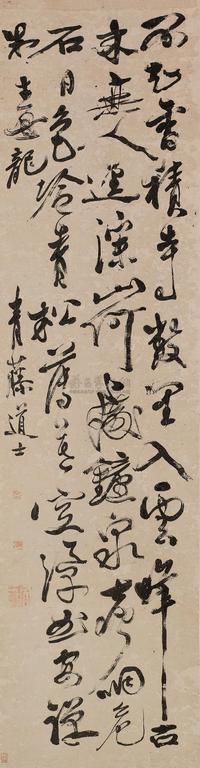 不知香積寺數里入雲峰古
木無人逕深山何處鐘泉聲咽危
石日色冷青松薄暮空潭曲安禪
制毒龍
青藤道士